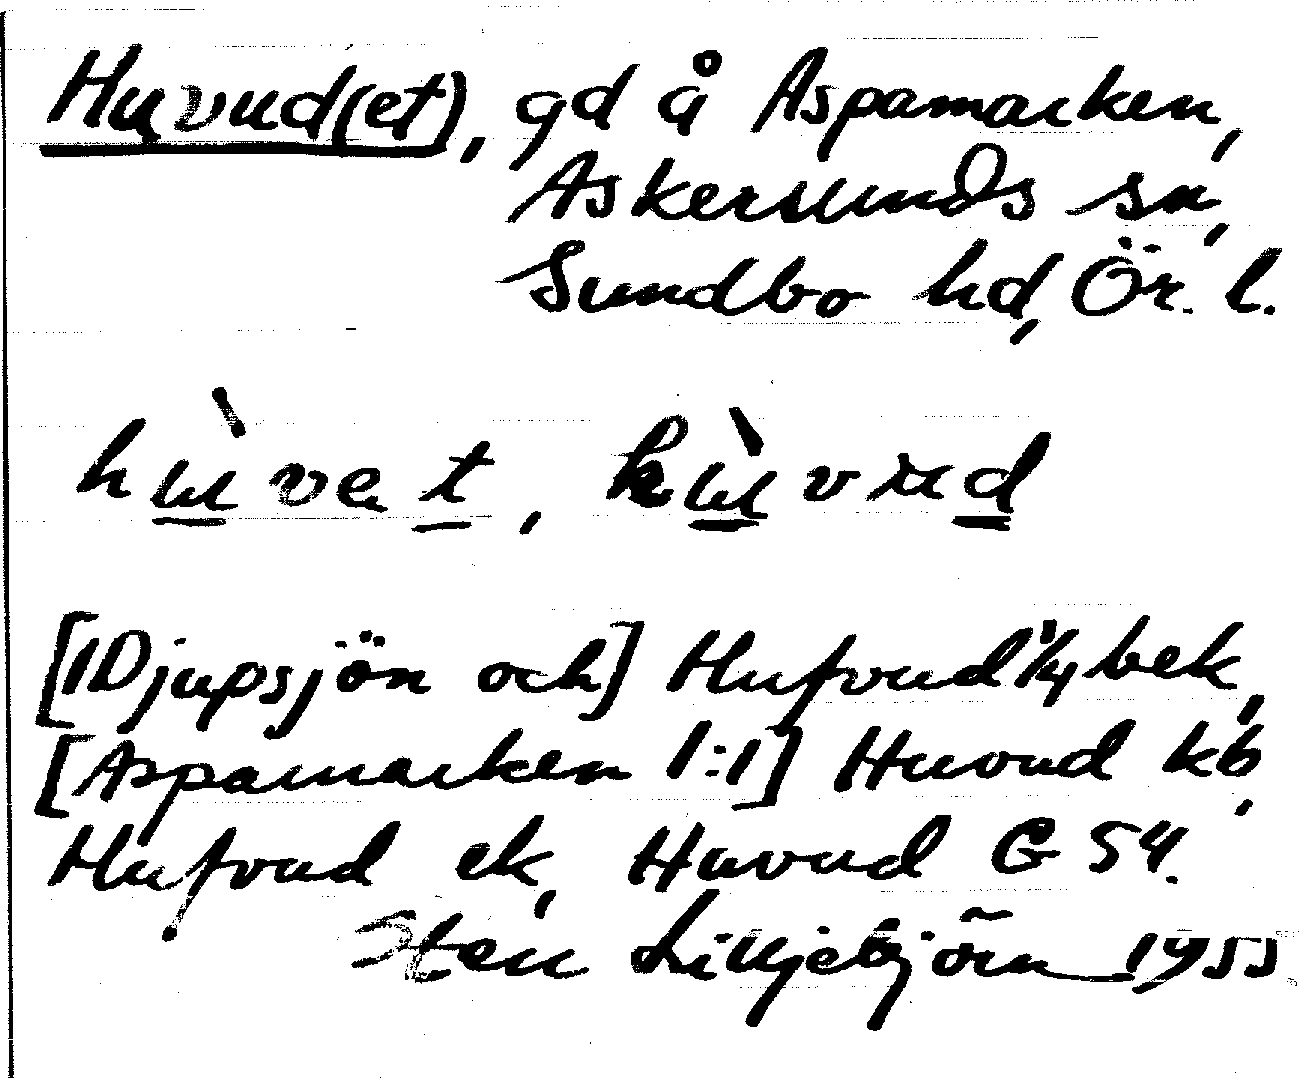 Huvud(et), gd å Aspamarken,
Askersunds sn,
Sundbo hd, Ör. l.
hùvet, hùvud
[1 Djupsjön och] Hufvud 1/4 bek,
[Aspamarken 1:1] Huvud kb,
Hufvud ek, Huvud G 54.
Sten Lilljebjörn 1955